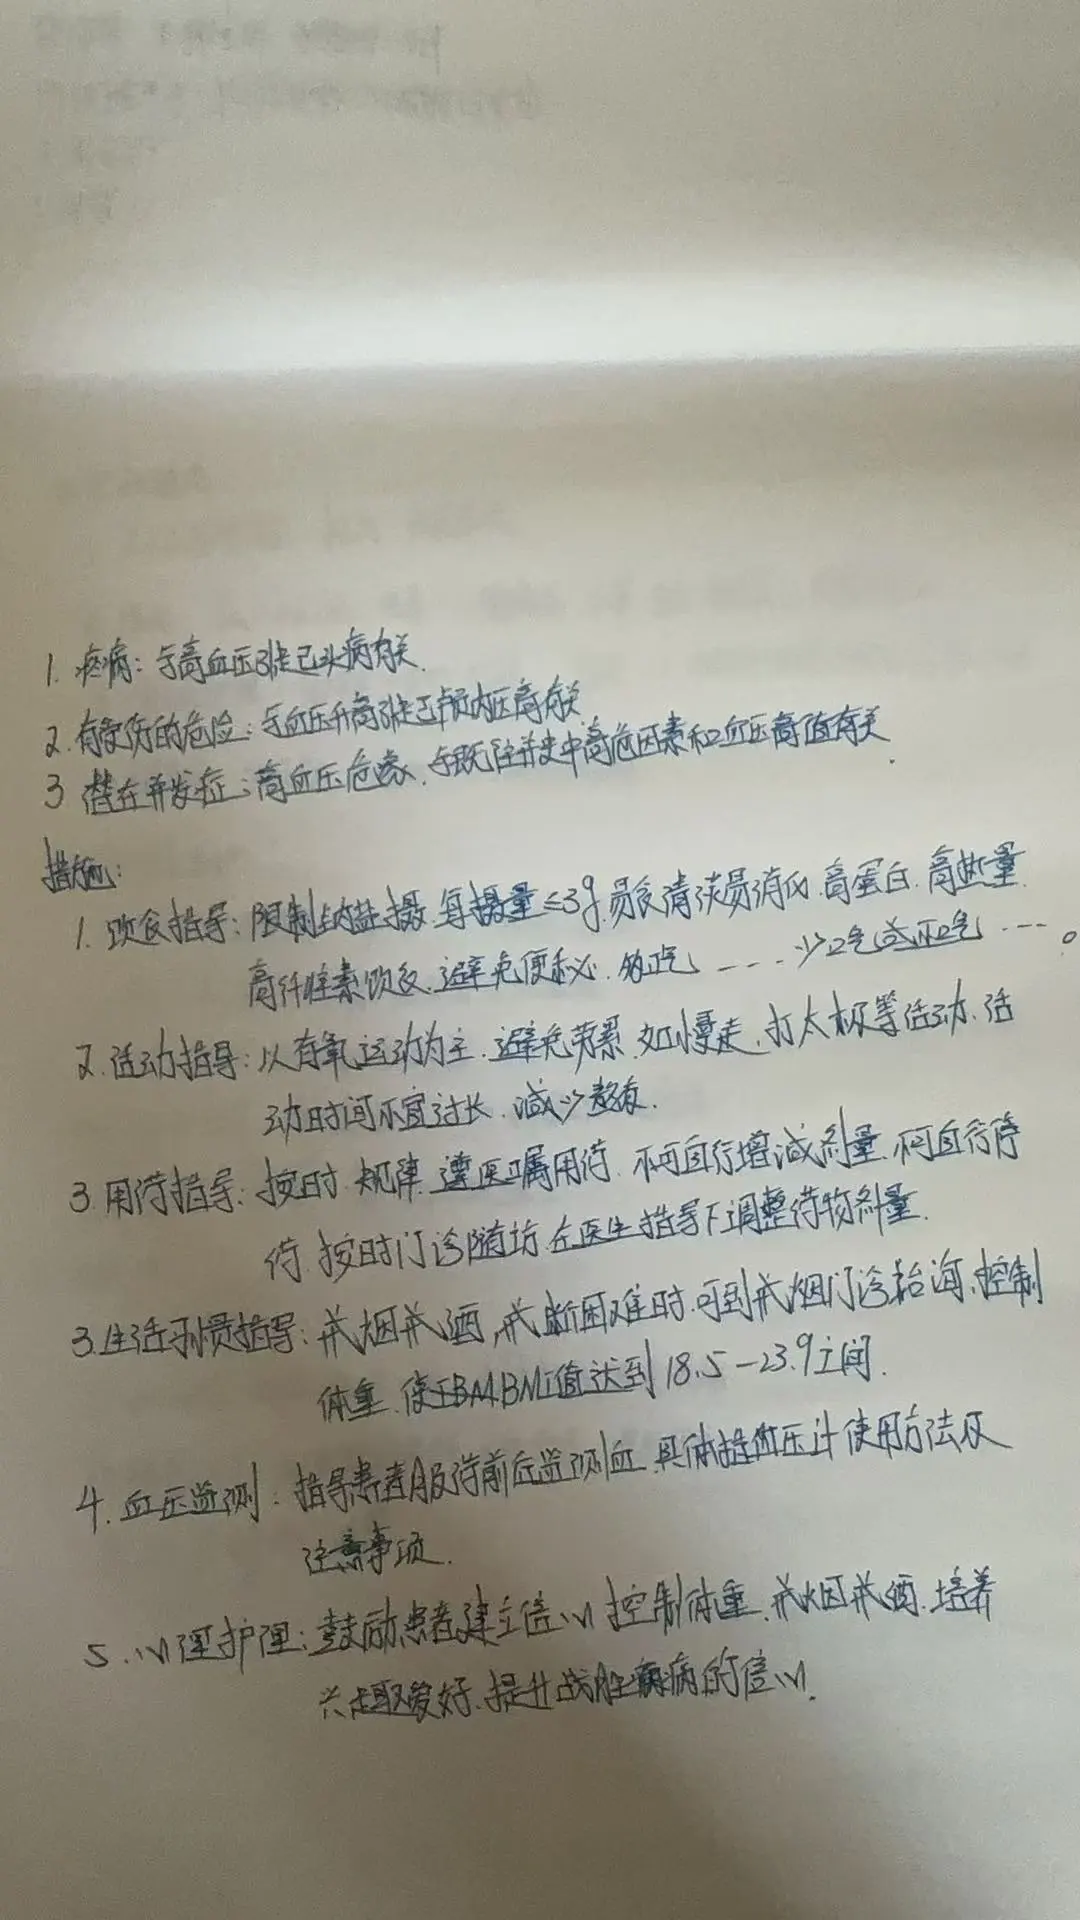 1. 疼痛：与高血压引起头痛有关.
2. 有受伤的危险：与血压升高引起颅内压高有关
3 潜在并发症：高血压危象、与既往病史中高危因素和血压高值有关.
措施：
1. 饮食指导：限制钠盐摄, 每摄量≤3g. 易食清淡易消化、高蛋白、高热量
高纤维素饮食. 避免便秘. 多吃 ---- 少吃或不吃 ----。
2. 活动指导：以有氧运动为主. 避免劳累, 如慢走、打太极等活动、活
动时间不宜过长. 减少熬夜.
3 用药指导：按时 规律 遵医嘱用药. 不可自行增减剂量. 不可自行停
药. 按时门诊随访. 在医生指导下调整药物剂量.
3. 生活习惯指导：戒烟戒酒, 戒断困难时.可到戒烟门诊咨询、控制
体重. 使BMI值达到 18.5-23.9之间.
4. 血压监测：指导患者服药前后监测血 具体指血压计使用方法及
注意事项.
5. 心理护理：鼓励患者建立信心 控制体重、戒烟戒酒. 培养
兴趣爱好. 提升战胜疾病的信心.